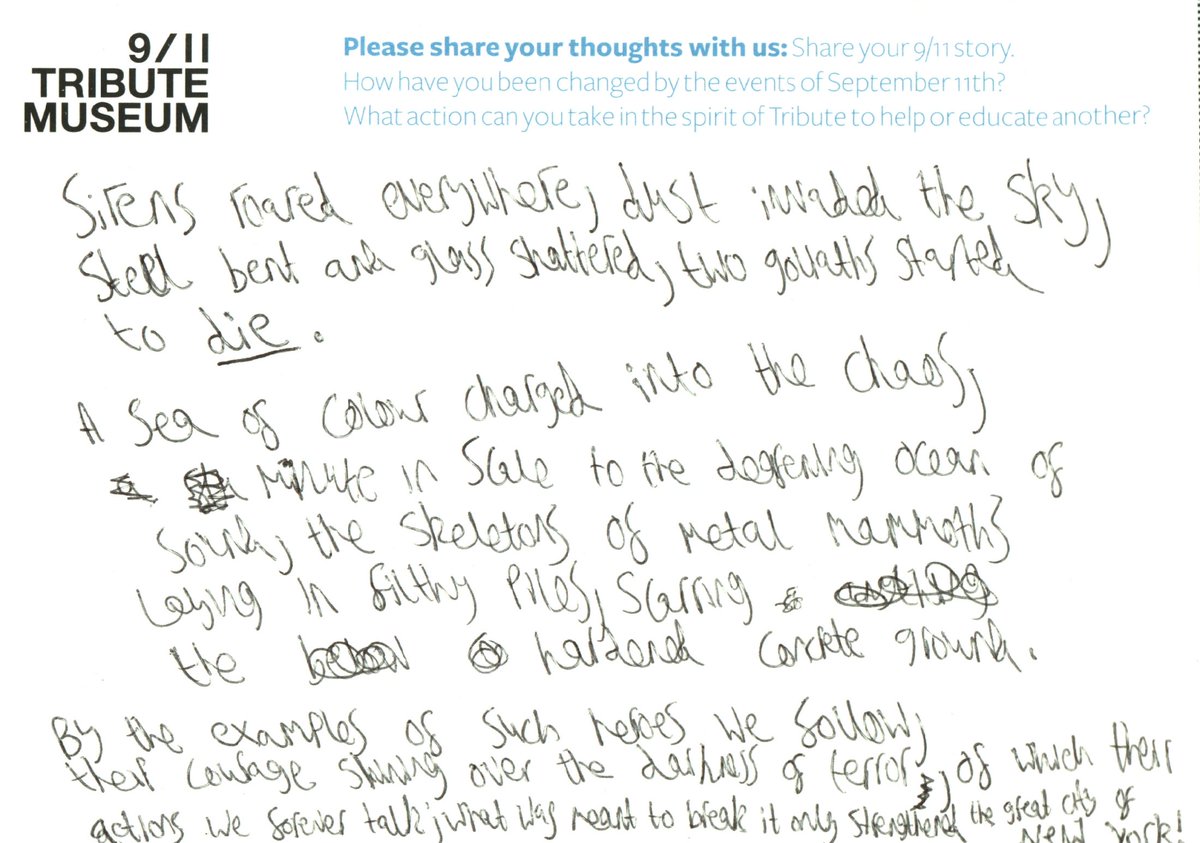 9/11
TRIBUTE
MUSEUM
Please share your thoughts with us: Share your 9/11 story.
How have you been changed by the events of September 11th?
What action can you take in the spirit of Tribute to help or educate another?
Sirens roared everywhere, dust invaded the sky,
Steel bent and glass shattered, two goliaths started
to die.
A sea of colour charged into the chaos,
minute in scale to the deafening ocean of
sound, the skeletons of metal mammoths
laying in filthy piles, scarring
the hardened concrete ground.
By the examples of such heroes we follow,
their courage shining over the darkness of terror, of which their
actions we forever talk; what was meant to break it only strengthened the great city of
New York!